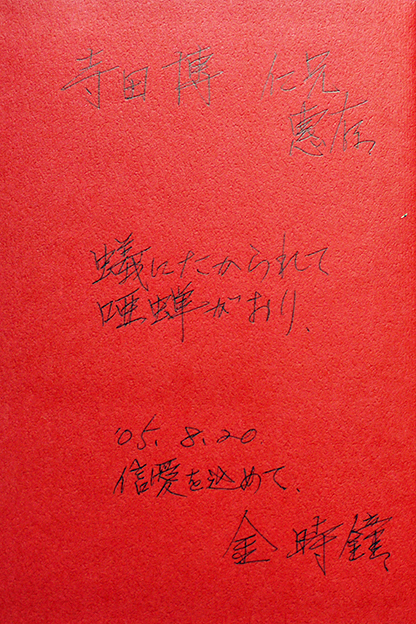 寺田博 仁兄
恵存
蟻にたかられて
唖蝉がおり、
'05. 8. 20
信愛を込めて、
金時鐘